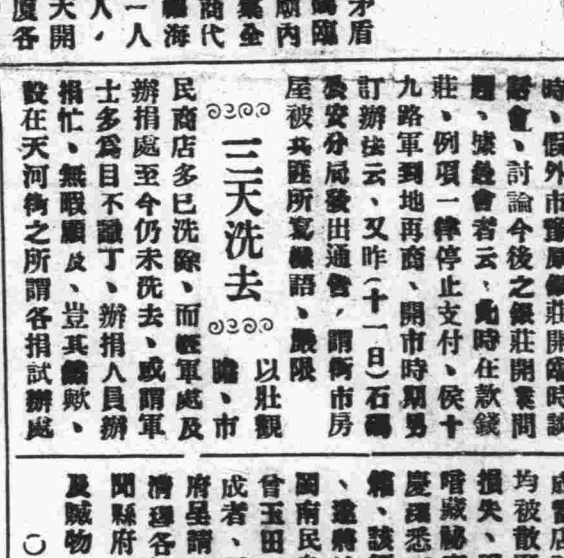 矛盾
臨
廟內
金
商代
海
一人
人，
天開
廈各
時、假外市莊開臨時談
話會、討論今後之銀莊開業問
題、據會者云、此時任款錢
莊、例項一律停止支付、俟十
九路軍到地再商、開市時期另
訂辦法云、又昨（十一日）石碼
公安分局發出通告、謂街市房
屋被共匪所寫標語、嚴限
三天洗去
以壯觀
瞻、市
民商店多已洗除、而駐軍處及
辦捐處至今仍未洗去、或謂軍
士多爲目不識丁、辦捐人員辦
捐忙、無暇顧及、豈其然歟、
設在天河街之所謂各捐試辦處
店
均被散
損失、
暗藏秘
慶悉
箱、該
、
閩南民
曾玉田
成者、
府呈請
清理各
聞縣府
及贓物
○